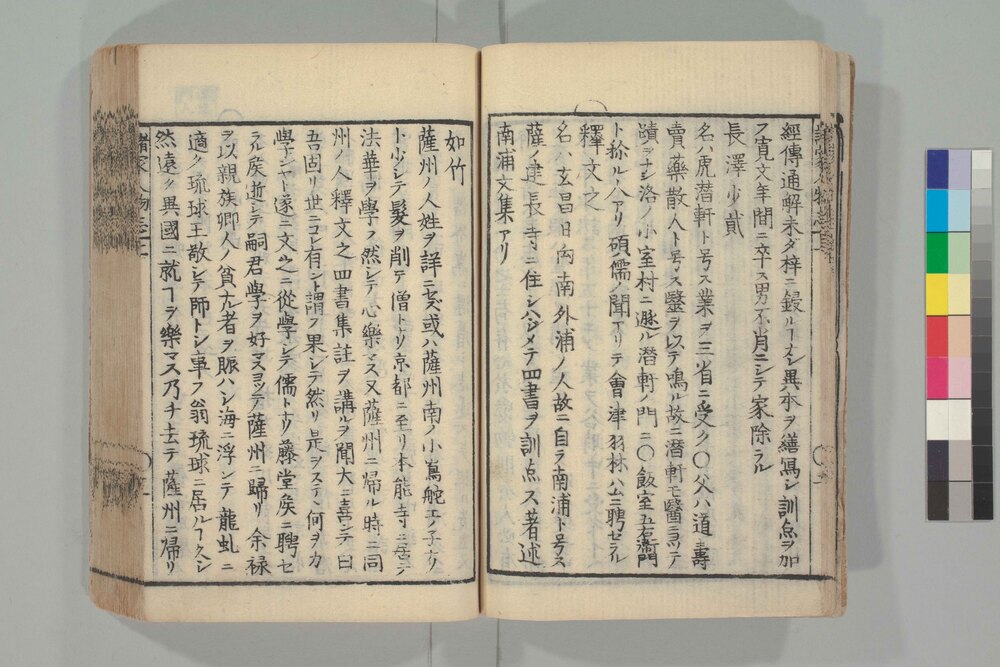 經傳通解未ダ梓ニ鋟ルヿナシ異本ヲ繕寫シ訓点ヲ加
フ寛文年間ニ卒ス男不肖ニシテ家除ル
長澤少貳
名ハ虎潜軒ト号ス業ヲ三省ニ受ク〇父ハ道壽
賣藥散人ト号ス醫ヲ以テ鳴ル故ニ潜軒モ醫ニヨツテ
蹟ヲナシ洛ノ小室村ニ遯ル潜軒ノ門ニ〇飯室五右衛門
ト称ル人アリ碩儒ノ聞アリテ會津羽林公ニ聘セラル
釋文之
名ハ玄昌日向南外浦ノ人故ニ自ラ南浦ト号ス
薩ノ建長寺ニ住シハジメテ四書ヲ訓点ス著述
南浦文集アリ
如竹
薩州ノ人姓ヲ詳ニセズ或ハ薩州南ノ小嶌舵工ノ子ナリ
ト少シテ髮ヲ削テ僧トナリ京都ニ至リ本能寺ニ居テ
法華ヲ學フ然シテ心樂マス又薩州ニ帰ル時ニ同
州ノ人釋文之四書集註ヲ講ルヲ聞大ニ喜ンテ曰
吾固リ世ニコレ有ント謂フ果シテ然リ是ヲステ何ヲカ
學ンヤト遂ニ文之ニ從學シテ儒トナリ藤堂矦ニ聘セ
ラル矦逝シテ嗣君學ヲ好マスヨツテ薩州ニ歸リ余禄
ヲ以親族卿人ノ貧ナル者ヲ賑ハシ海ニ浮ンテ龍虬ニ
適ク琉球王敬シテ師トシ事フ翁琉球ニ居ルヿ久シ
然遠ク異國ニ就ヿヲ樂マス乃チ去テ薩州ニ帰リ